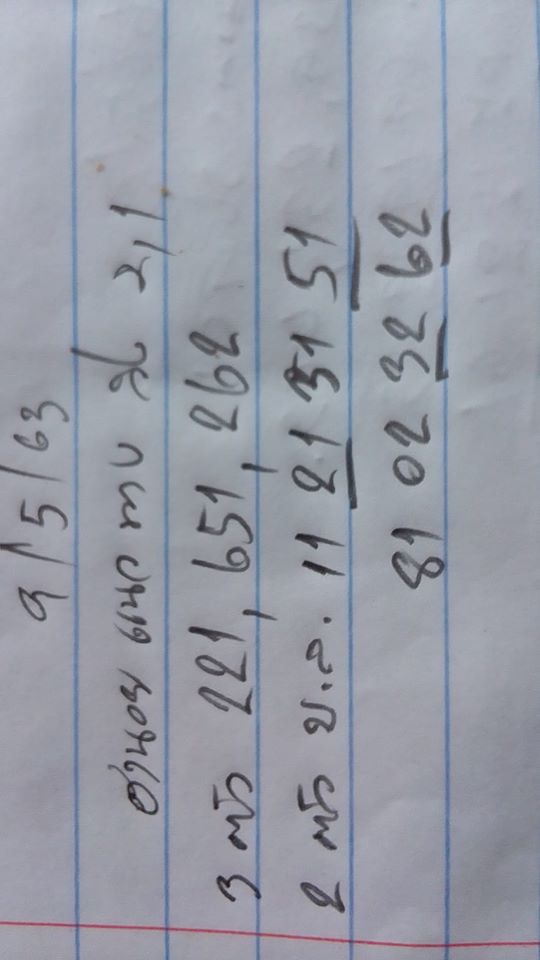 9/5/63
ฮานอย
2,1
3 ตัว 221, 651, 262
2 ตัว บ.ล. 11 21 31 51
81 02 32 62